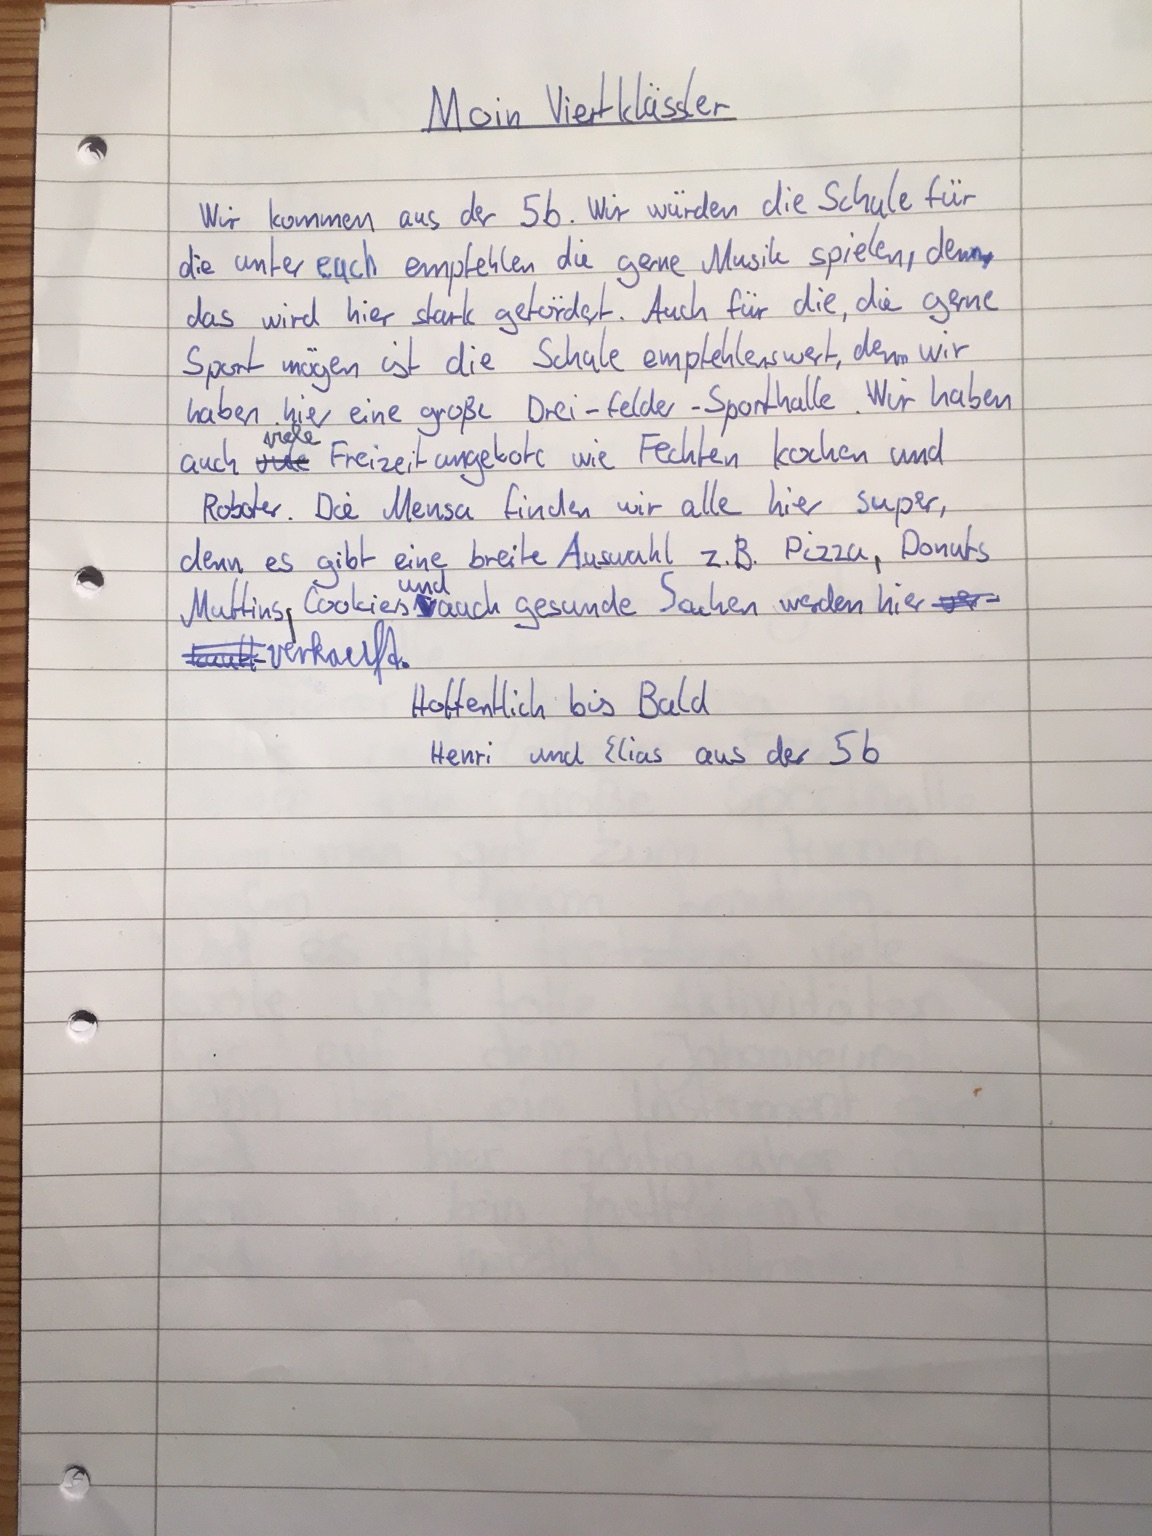 Moin Viertklässler
Wir kommen aus der 5b. Wir würden die Schule für
die unter euch empfehlen die gerne Musik spielen, denn,
das wird hier stark gefördert. Auch für die, die gerne
Sport mögen ist die Schule empfehlenswert, denn wir
haben hier eine große Drei-felder-Sporthalle. Wir haben
auch viele Freizeitangebote wie Fechten kochen und
Roboter. Die Mensa finden wir alle hier super,
denn es gibt eine breite Auswahl z.B. Pizza, Donuts
Muffins, Cookies und auch gesunde Sachen werden hier
verkauft.
Hoffentlich bis Bald
Henri und Elias aus der 5b